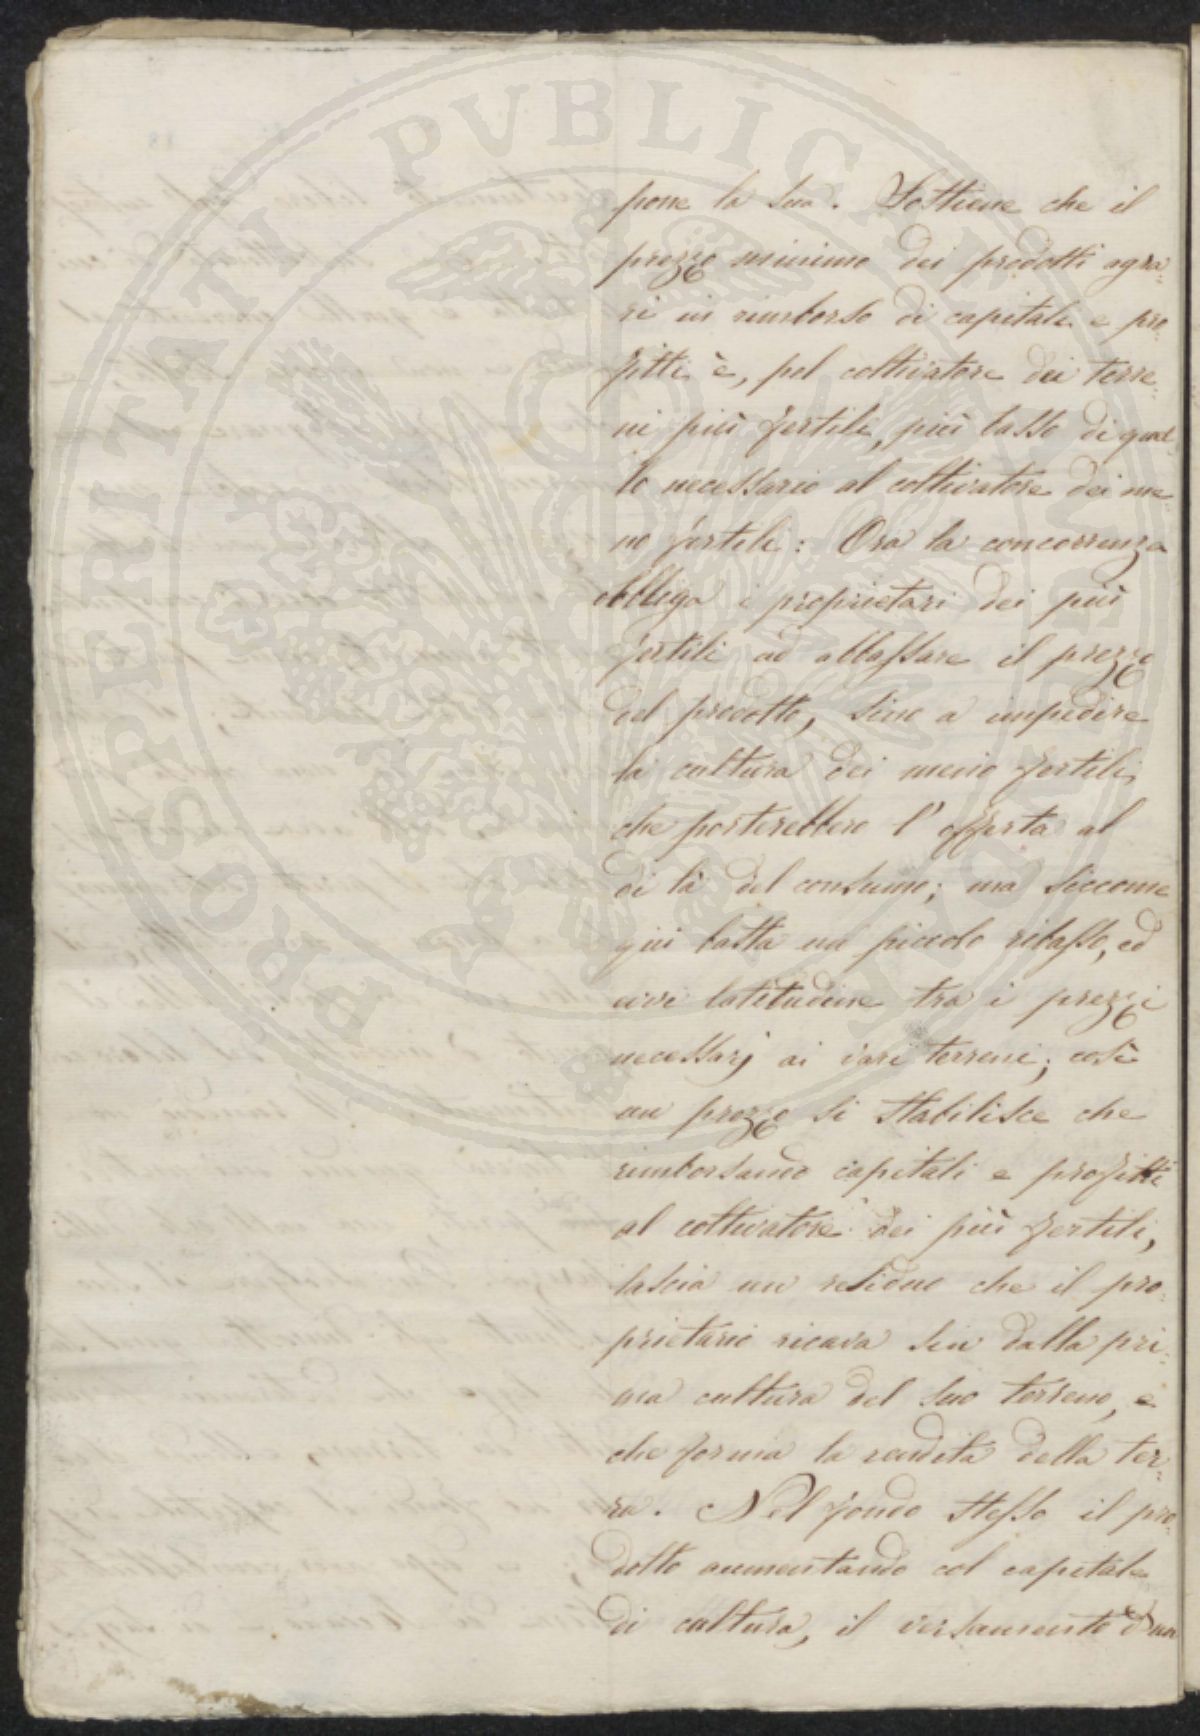 PROSPERITATI PVBLICAE AVGENDAE
pone la sua. Sostiene che il
prezzo minimo dei prodotti agra=
ri in rimborso di capitale e pro=
fitti è, pel coltivatore dei terre=
ni più fertili, più basso di quel=
lo necessario al coltivatore dei me=
no fertili: Ora la concorrenza
obbliga i proprietari dei più
fertili ad abbassare il prezzo
del prodotto, sino a impedire
la cultura dei meno fertili,
che porterebbero l'offerta al
di là del consumo; ma siccome
qui basta un piccolo ribasso, ed
evvi latitudine tra i prezzi
necessarj ai vari terreni; così
un prezzo si stabilisce che
rimborsando capitali e profitti
al coltivatore dei più fertili,
lascia un residuo che il pro=
prietario ricava sin dalla pri=
ma cultura del suo terreno, e
che forma la rendita della ter=
ra. Nel fondo stesso il pro=
dotto aumentando col capitale
di cultura, il versamento d'un